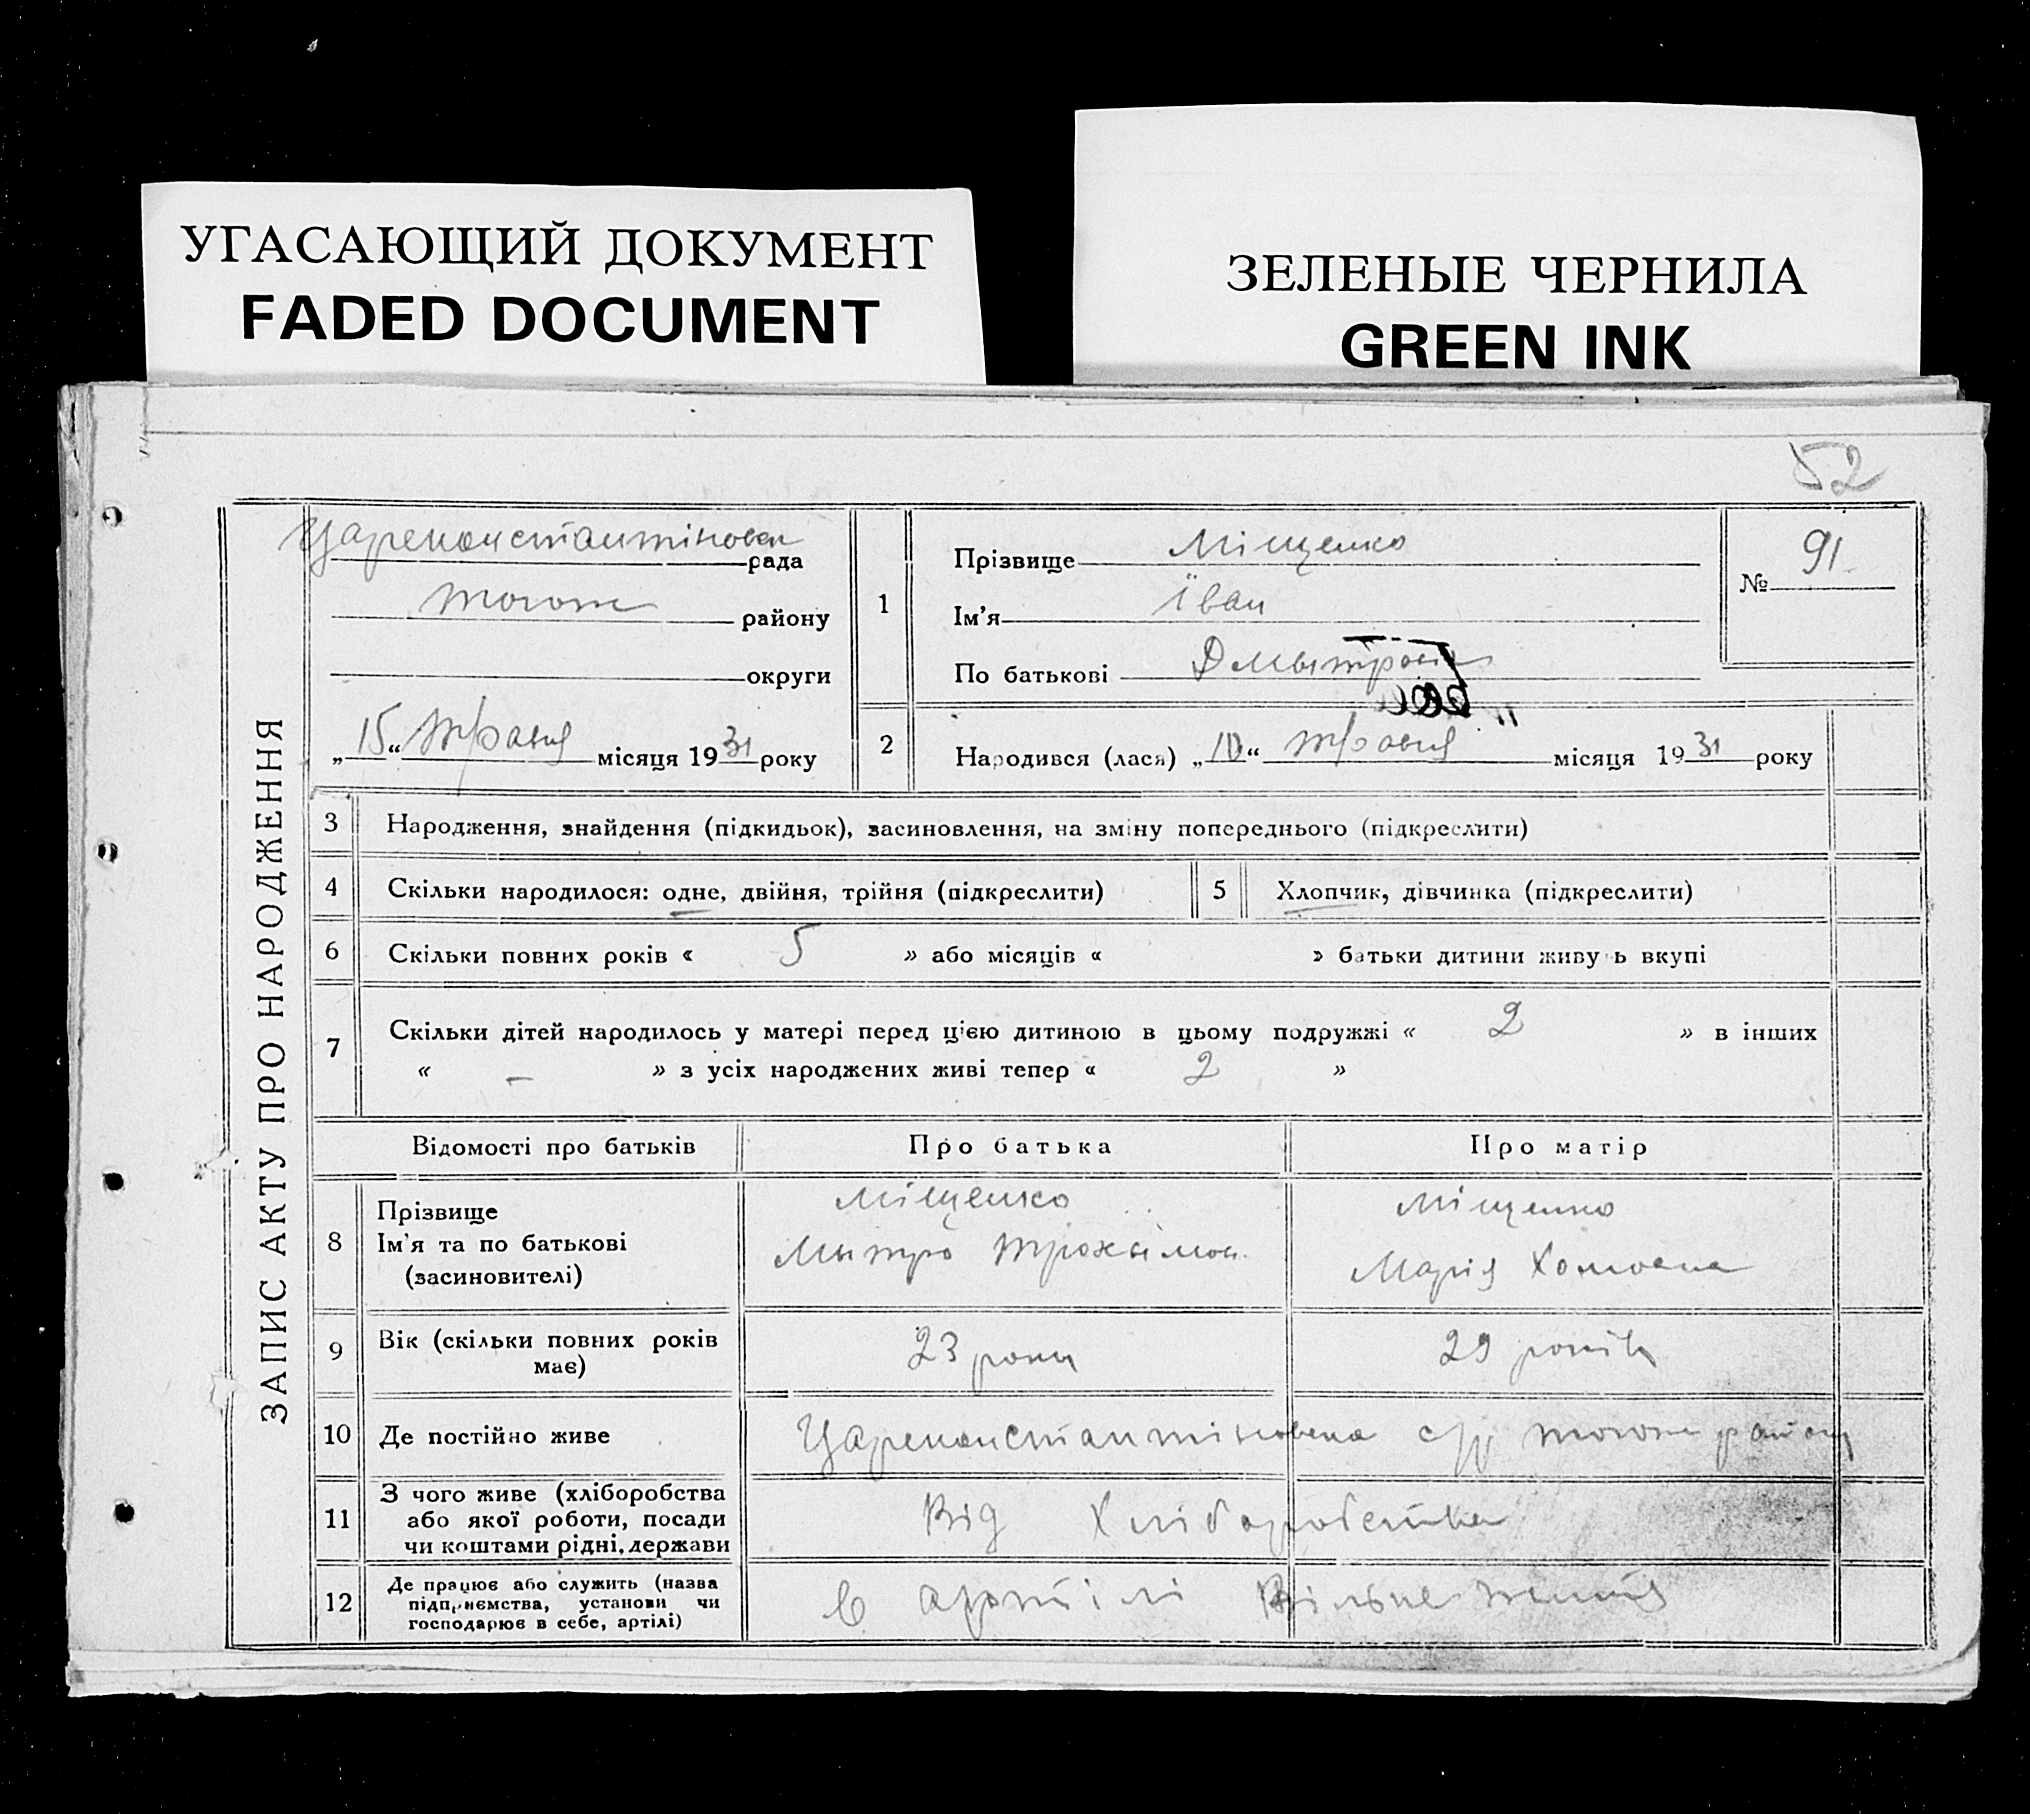 УГАСАЮЩИЙ ДОКУМЕНТ
FADED DOCUMENT
ЗЕЛЕНЫЕ ЧЕРНИЛА
GREEN INK
52
ЗАПИС АКТУ ПРО НАРОДЖЕННЯ
Цареконстантіновск
рада
району
округи
„15“ травня місяця 1931 року
1
Прізвище Міщенко
Ім’я Їван
По батькові
№ 91
2 Народився (лася) „10“ травня місяця 1931 року
3 Народження, знайдення (підкидьок), засиновлення, на зміну попереднього (підкреслити)
4 Скільки народилося: одне, двійня, трійня (підкреслити)
5 Хлопчик, дівчинка (підкреслити)
6 Скільки повних років « 5 » або місяців « » батьки дитини живуть вкупі
7 Скільки дітей народилось у матері перед цією дитиною в цьому подружжі « 2 » в інших
« – » з усіх народжених живі тепер « 2 »
Відомості про батьків Про батька Про матір
8 Прізвище
Ім’я та по батькові
(засиновителі)
Міщенко
Мытро Трохымов.
Міщенко
Марія Хомовна
9 Вік (скільки повних років
має)
23 роки
29 років
10 Де постійно живе
Цареконстантіновска с/р район
11 З чого живе (хліборобства
або якої роботи, посади
чи коштами рідні, держави
Від Хліборобства
12 Де працює або служить (назва
підприємства, установи чи
господарює в себе, артілі)
В артілі Вільне життя